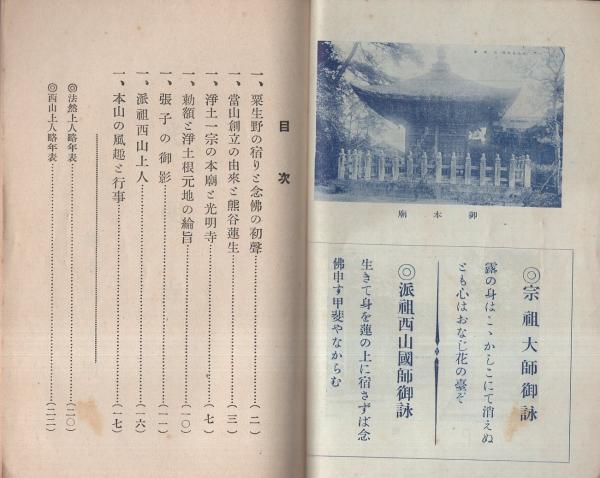 御本廟
◎宗祖大師御詠
露の身はこゝかしこにて消えぬ
とも心はおなじ花の臺ぞ
◎派祖西山國師御詠
生きて身を蓮の上に宿さずば念
佛申す甲斐やなからむ
目次
一、粟生野の宿りと念佛の初聲…………(一)
一、當山創立の由來と熊谷蓮生…………(三)
一、淨土一宗の本廟と光明寺…………(七)
一、勅額と淨土根元地の綸旨…………(一〇)
一、張子の御影…………(一一)
一、派祖西山上人…………(一六)
一、本山の風趣と行事…………(一七)
◎法然上人略年表…………(二〇)
◎西山上人略年表…………(二二)